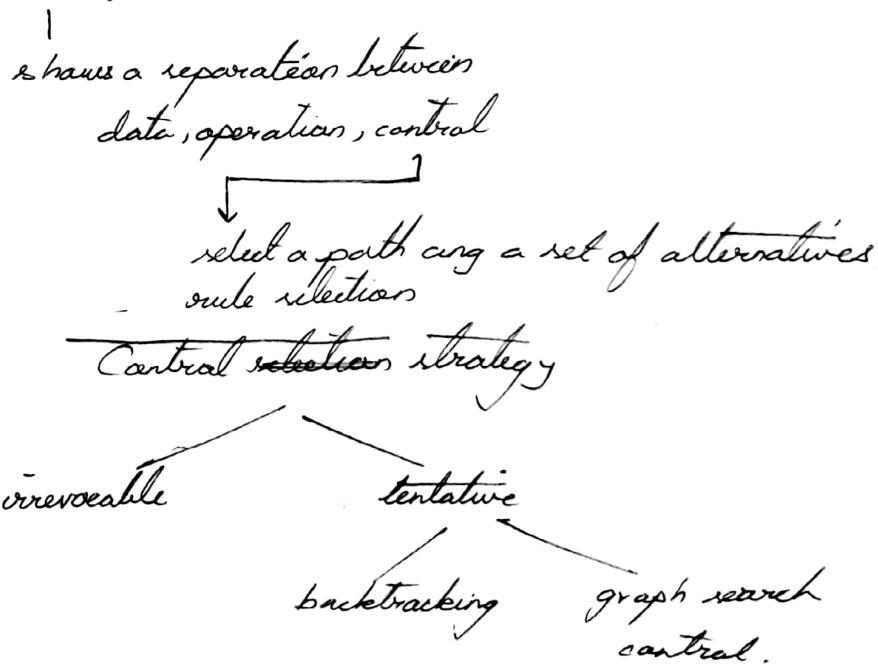 shows a separation between
data, operation, control
select a path ang a set of alternatives
rule selection
Control selection strategy
irrevocable tentative
backtracking graph search
control.